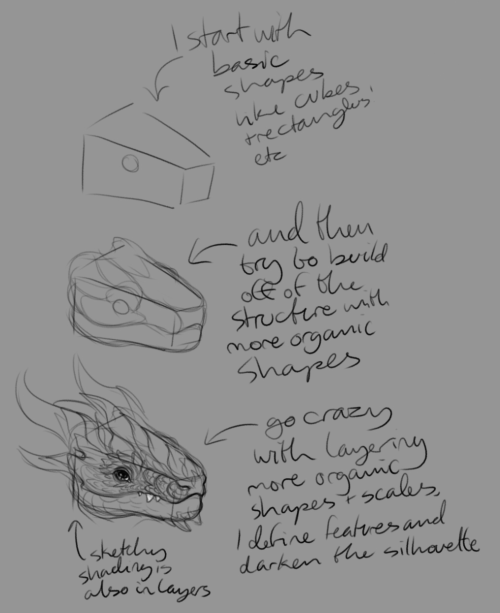 I start with
basic
shapes
like cubes,
+rectangles,
etc
and then
try to build
off of the
structure with
more organic
shapes
go crazy
with layering
more organic
shapes + scales,
I define features and
darken the silhouette
sketchy
shading is
also in layers